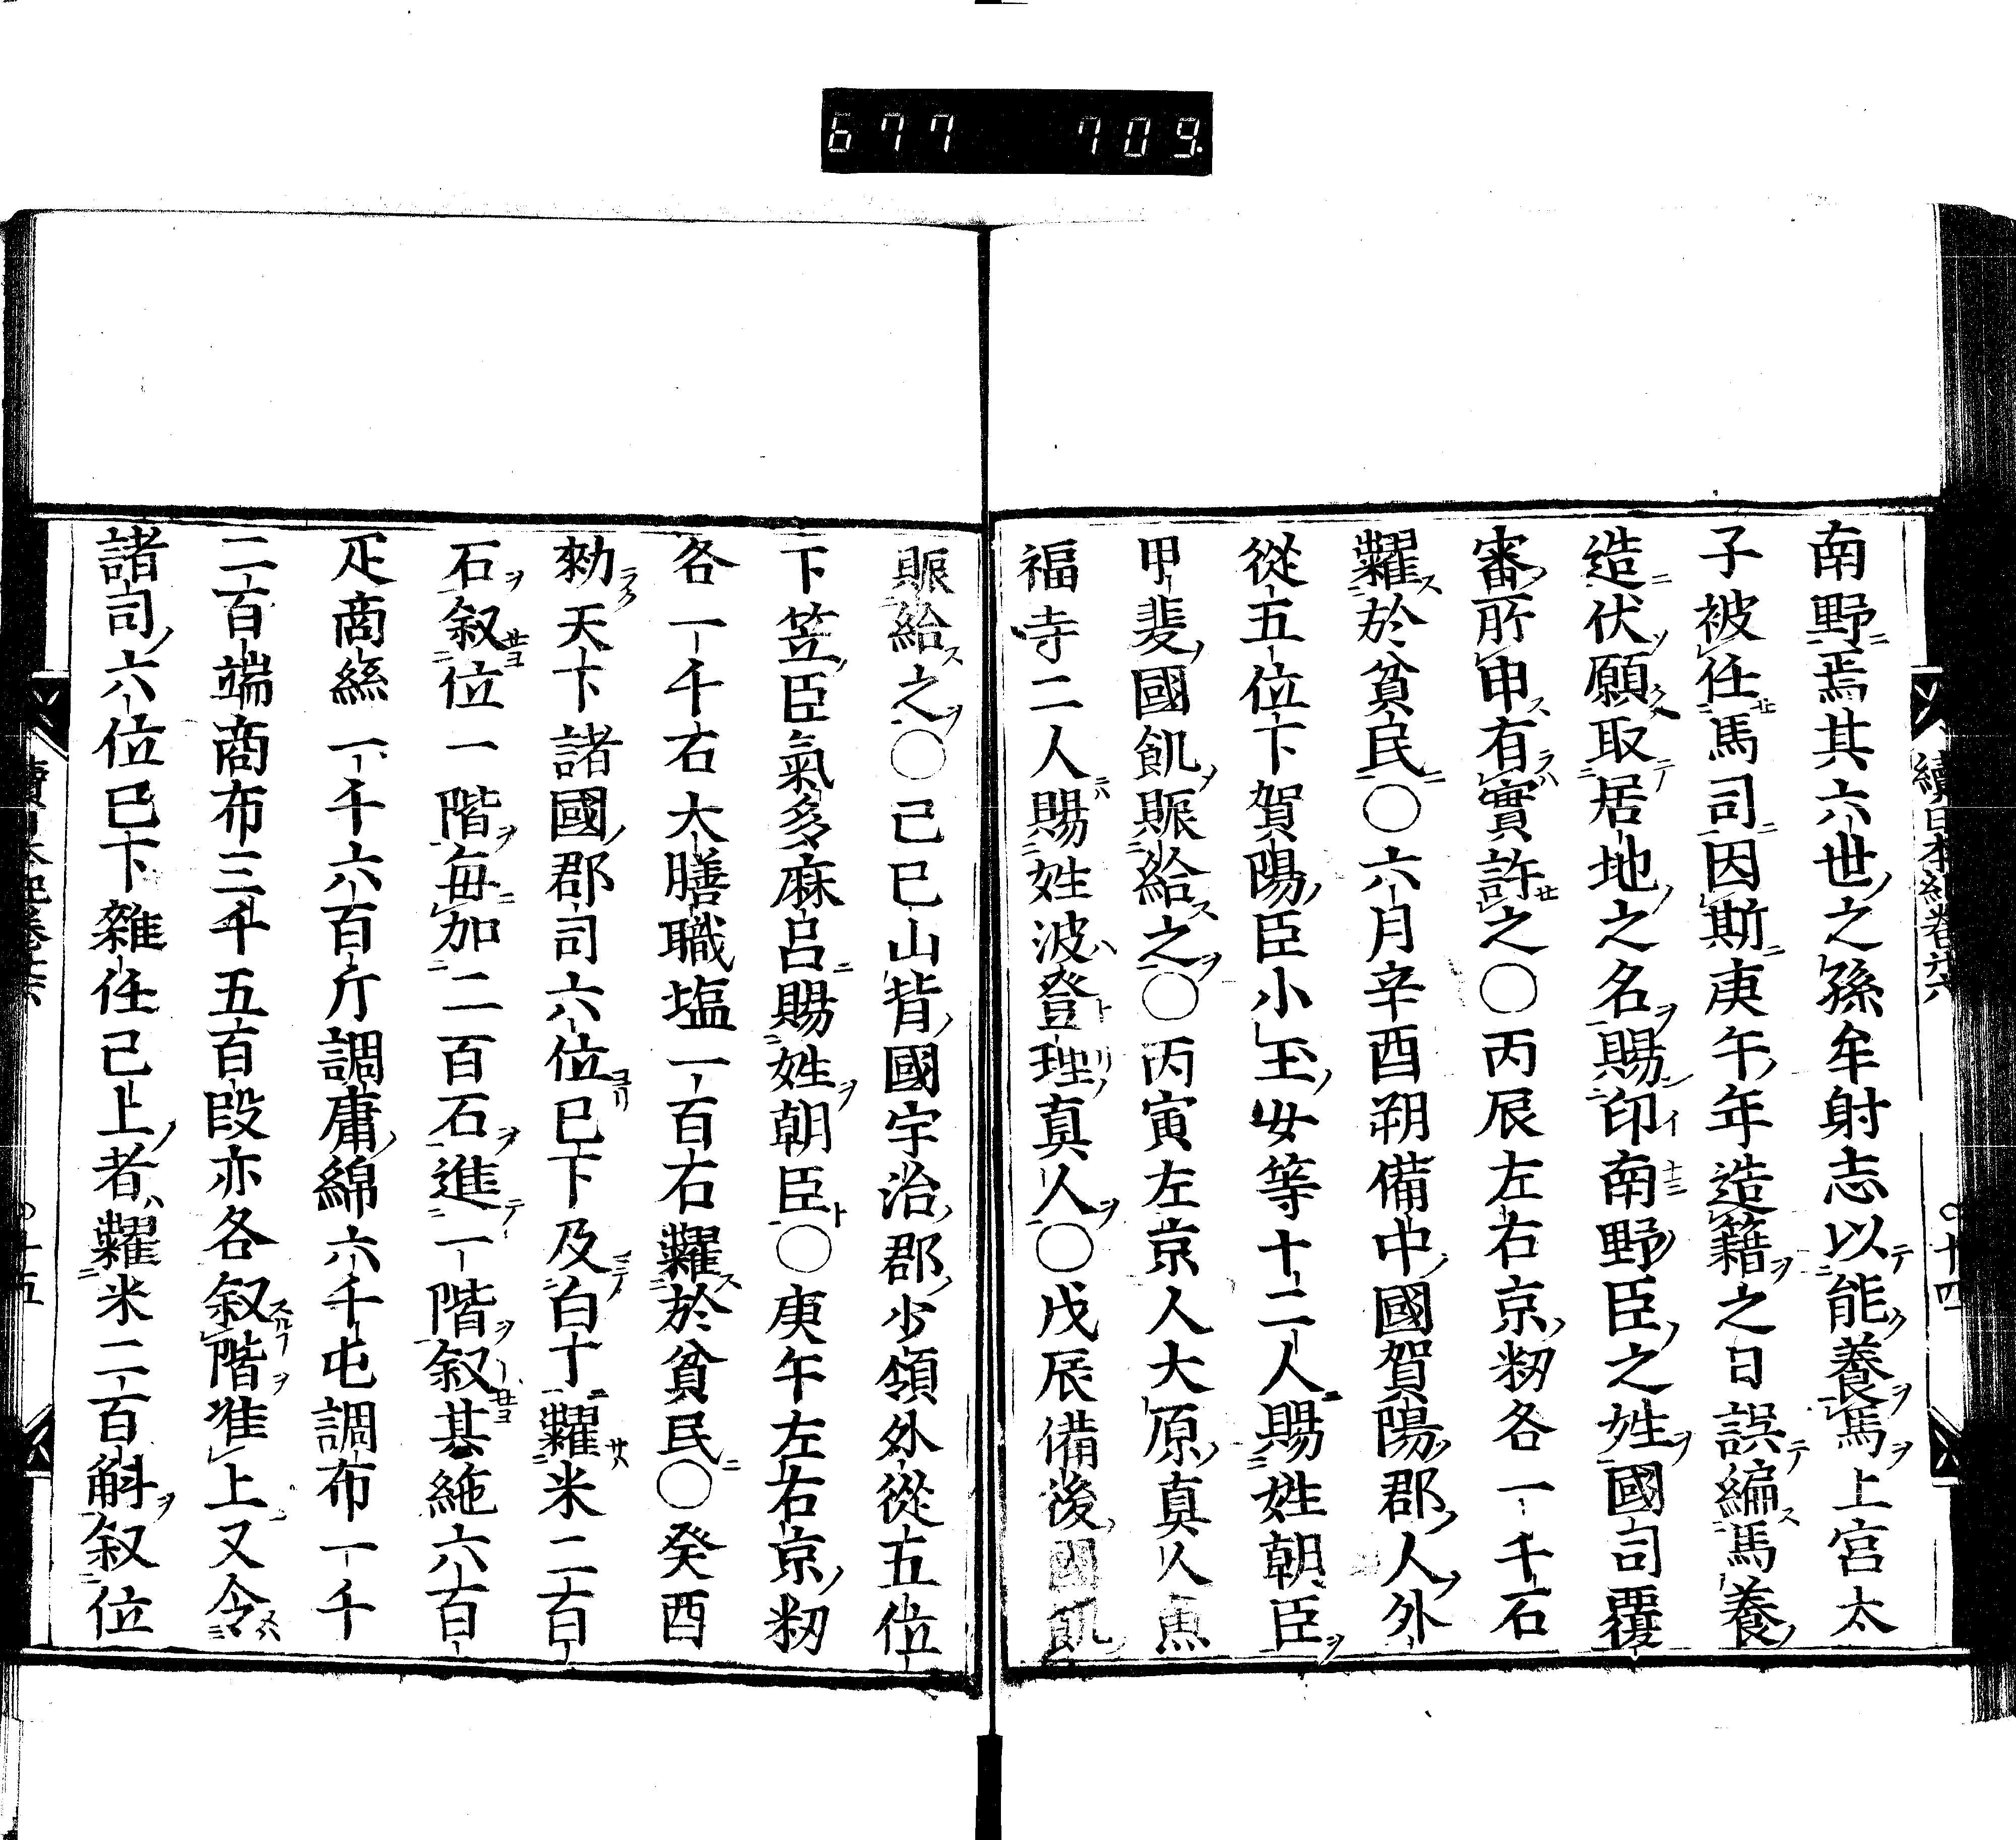 677 709
續日本紀卷廿六
○十四
南野焉其六世之孫牟射志以能養馬上宮太
子被任馬司因斯庚午年造籍之日誤編馬養
造伏願取居地之名賜印南野臣之姓國司覆
審所申有實許之○丙辰左右京籾各一千石
糶於貧民○六月辛酉朔備中國賀陽郡人外
從五位下賀陽臣小玉女等十二人賜姓朝臣
甲斐國飢賑給之○丙寅左京人大原真人魚
福寺二人賜姓波登理真人○戊辰備後國飢
賑給之○己巳山背國宇治郡少領外從五位
下笠臣氣多麻呂賜姓朝臣○庚午左右京籾
各一千石大膳職塩一百石糶於貧民○癸酉
勑天下諸國郡司六位已下及白丁糶米二百
石叙位一階每加二百石進一階叙其絁六百
疋商絲一千六百斤調庸綿六千屯調布一千
二百端商布三千五百段亦各叙階准上又令
諸司六位已下雜任已上者糶米二百斛叙位